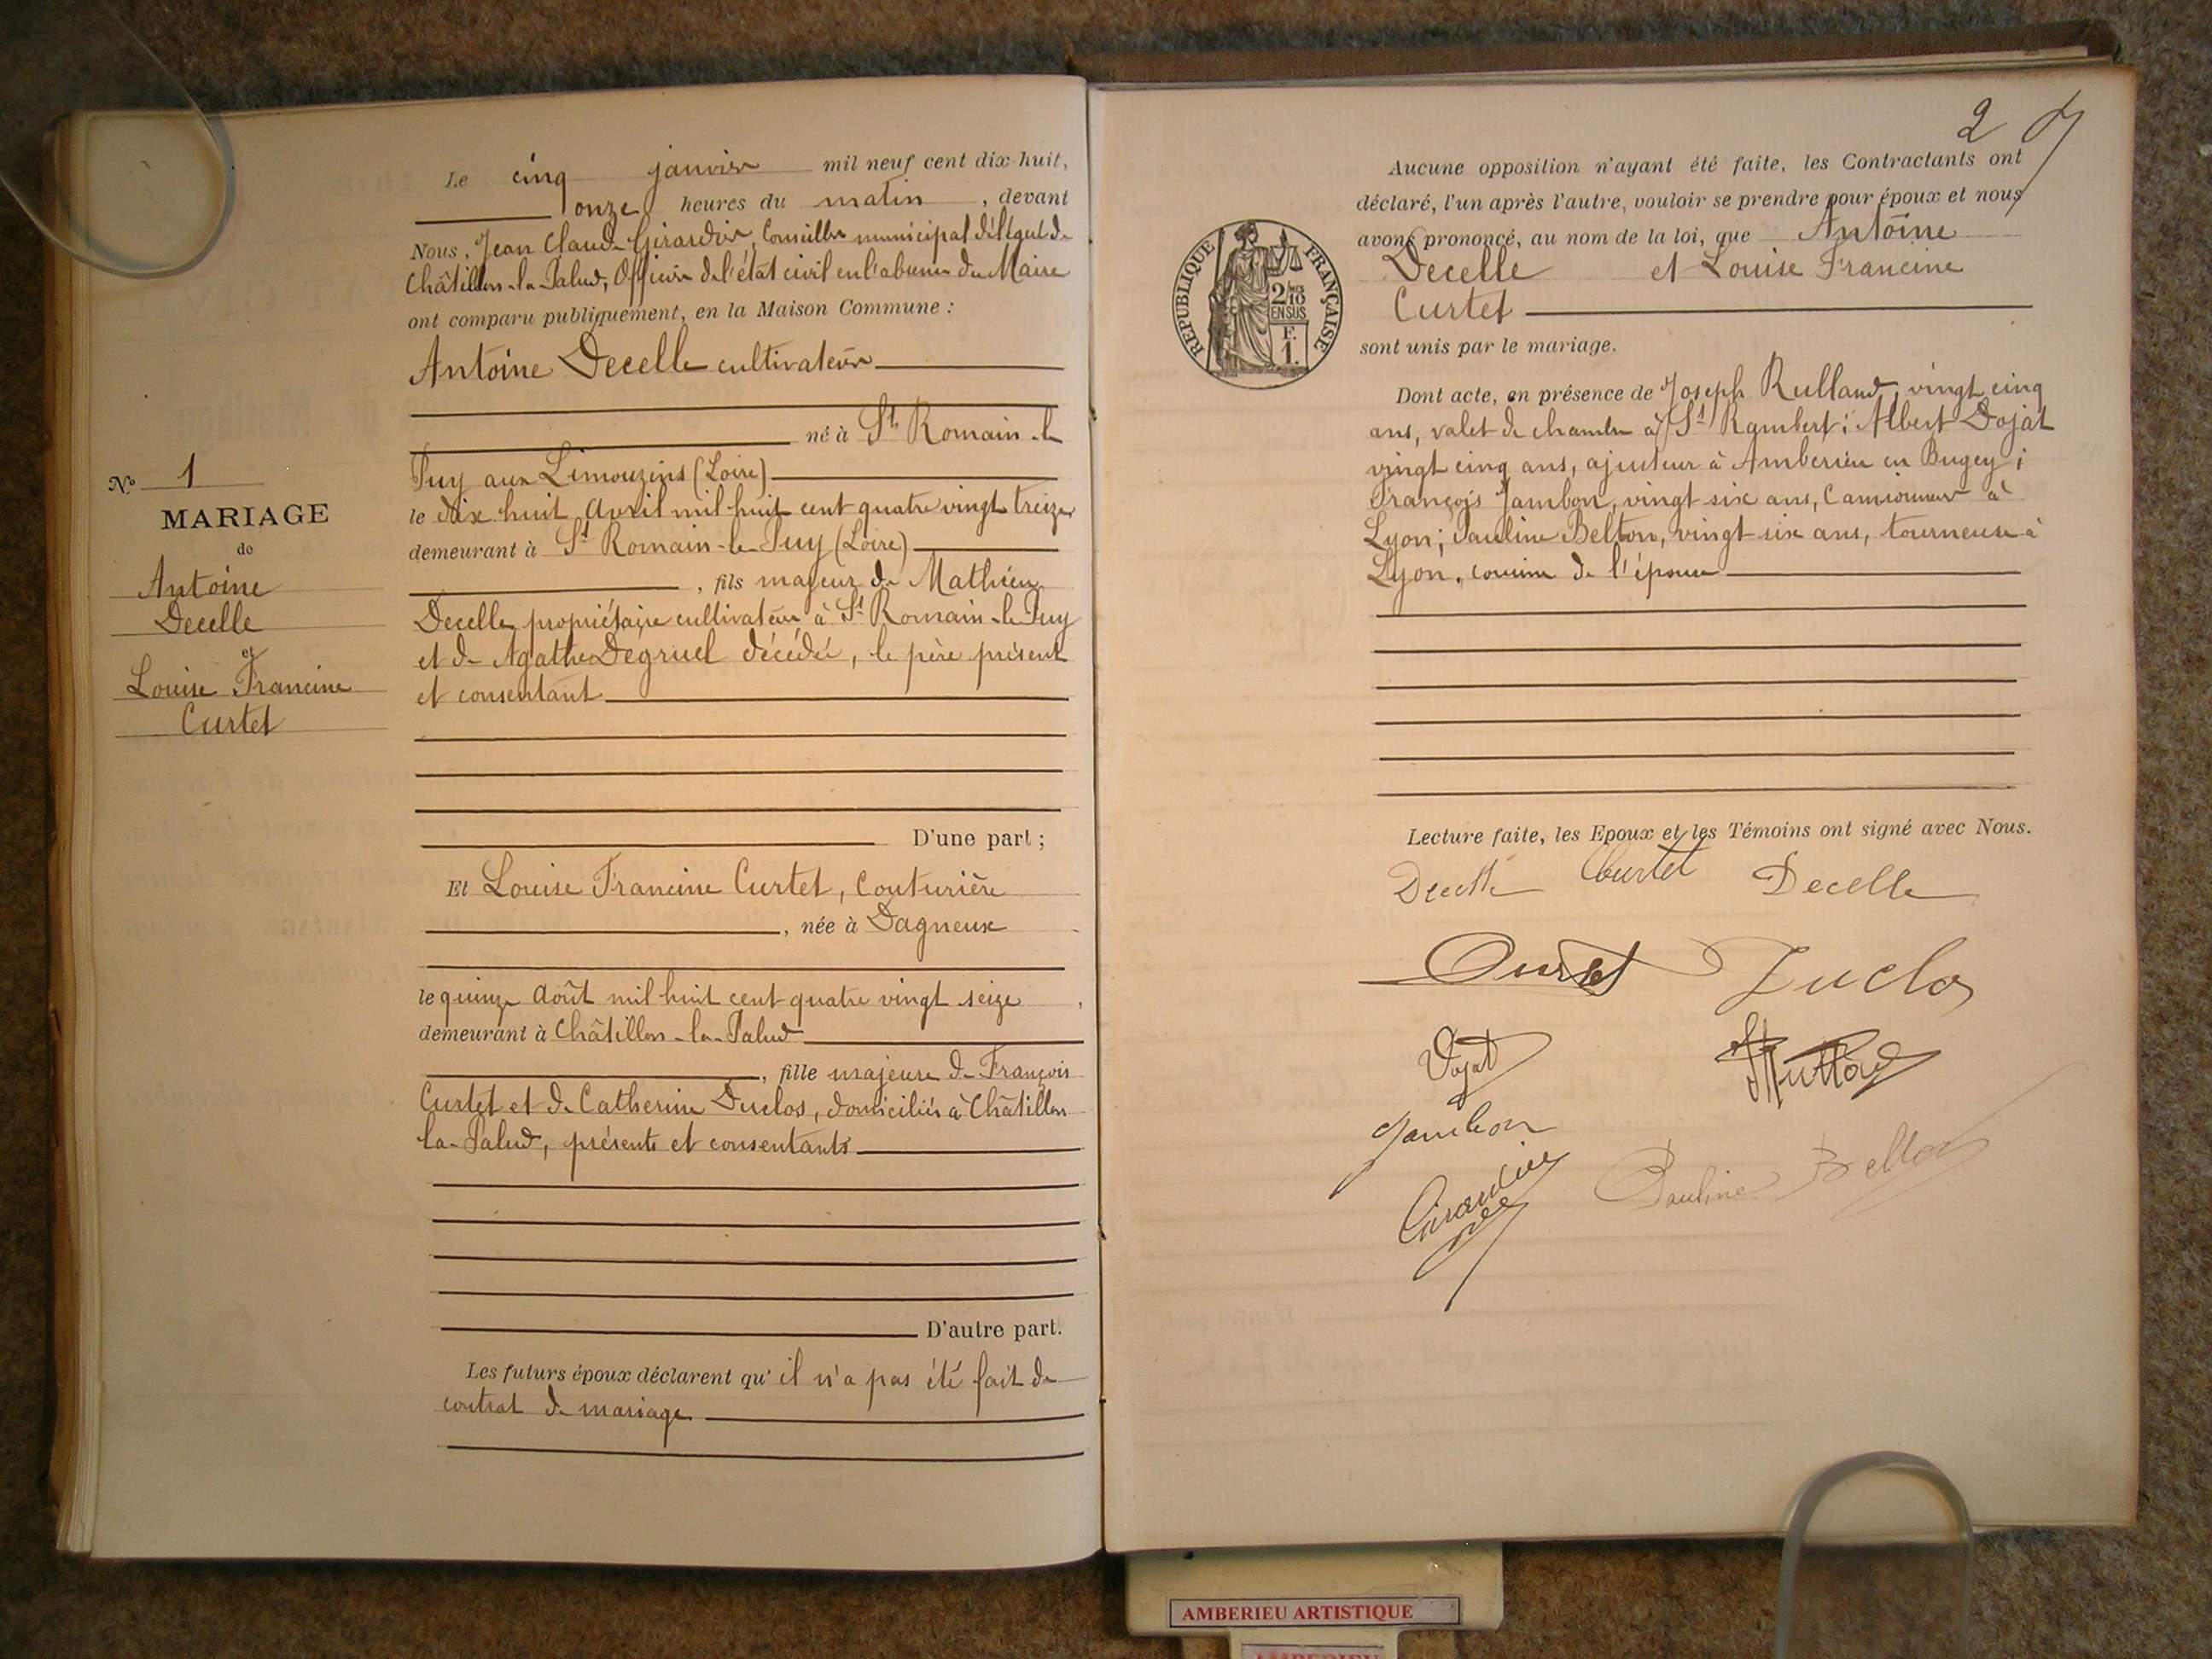 Le cinq janvier mil neuf cent dix-huit,
onze heures du matin, devant
Nous, Jean Claude Girardin, Conseiller municipal délégué de
Châtillon-la-Palud, Officier de l'état civil en l'absence du Maire
ont comparu publiquement, en la Maison Commune :
Antoine Decelle cultivateur
né à St Romain-le
Puy aux Limouzins (Loire)
le dix huit avril mil huit cent quatre vingt treize
demeurant à St Romain-le-Puy (Loire)
, fils majeur de Mathieu
Decelle propriétaire cultivateur à St Romain-le-Puy
et de Agathe Degruel décédée, le père présent
et consentant
D'une part ;
Et Louise Francine Curtet, Couturière
, née à Dagneux
le quinze août mil huit cent quatre vingt seize,
demeurant à Châtillon-la-Palud
, fille majeure de François
Curtet et de Catherine Duclos, domiciliés à Châtillon
la-Palud, présents et consentants
D'autre part.
Les futurs époux déclarent qu'il n'a pas été fait de
contrat de mariage
No 1
MARIAGE
de
Antoine
Decelle
et
Louise Francine
Curtet
2
Aucune opposition n'ayant été faite, les Contractants ont
déclaré, l'un après l'autre, vouloir se prendre pour époux et nous
avons prononcé, au nom de la loi, que Antoine
Decelle et Louise Francine
Curtet
sont unis par le mariage.
RÉPUBLIQUE FRANÇAISE
2/10
EN SUS
F.
1.
Dont acte, en présence de Joseph Rulland, vingt cinq
ans, valet de chambre à St Rambert ; Albert Dojat
vingt cinq ans, ajusteur à Ambérieu en Bugey ;
François Jambon, vingt six ans, Camionneur à
Lyon ; Pauline Belton, vingt-six ans, tourneuse à
Lyon, cousine de l'épouse
Lecture faite, les Epoux et les Témoins ont signé avec Nous.
Decelle Curtet Decelle
Curtet Duclos
Dojat
Jambon
Girardin Pauline
AMBERIEU ARTISTIQUE
AMBERIEU